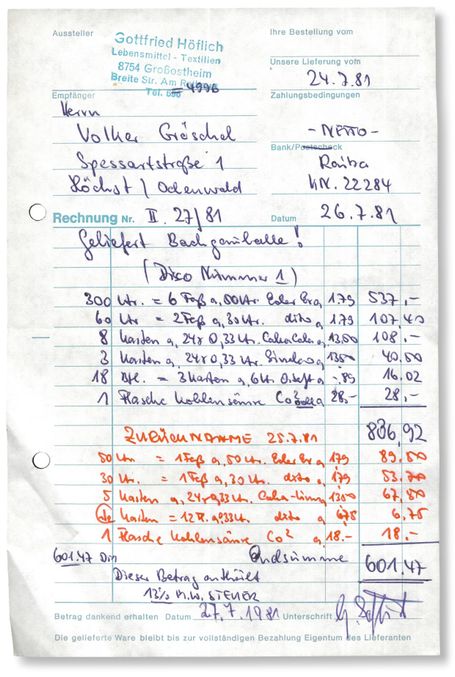 Aussteller
Gottfried Höflich
Lebensmittel - Textilien
8754 Großostheim
Breite Str. Am
Tel.
= 4996
Ihre Bestellung vom
Unsere Lieferung vom
24.7.81
Empfänger
Zahlungsbedingungen
Herrn
Volker Gröschel
- NETTO -
Spessartstraße 1
Bank/Postscheck
Raiba
Höchst / Odenwald
KN. 22284
Rechnung Nr. II. 27/81
Datum 26.7.81
Geliefert Bachgauhalle!
(Disco Nummer 1)
300 Ltr. = 6 Faß a, 50 Ltr. Eder 1.79 537,-
60 Ltr. = 2 Faß a, 30 Ltr. dito a, 1.79 107.40
8 Kasten a, 24 x 0,33 Ltr. Coca Cola a, 13.50 108,-
3 Kasten a, 24 x 0,33 Ltr. a, 13.50 40.50
18 Btl. = 3 Karton a, 6 Ltr. O. Saft a -.89 16.02
1 Flasche Kohlensäure Co² a 28,- 28,-
836,92
ZURÜCKNAHME 25.7.81
50 Ltr. = 1 Faß a, 50 Ltr. Eder a, 1.79 89.50
30 Ltr. = 1 Faß a, 30 Ltr. dito a, 1.79 53.70
5 Kasten a, 24 x 0,33 Ltr. Coca- a 13.50 67,50
Kasten = 12 Fl. a, 33 Ltr. dito a 6.75 6.75
1 Flasche Kohlensäure Co² a 18.- 18.-
601.47 Dm Endsumme 601.47
Dieser Betrag enthält
13% M.W. STEUER
Betrag dankend erhalten Datum 27.7.1981 Unterschrift
Die gelieferte Ware bleibt bis zur vollständigen Bezahlung Eigentum des Lieferanten